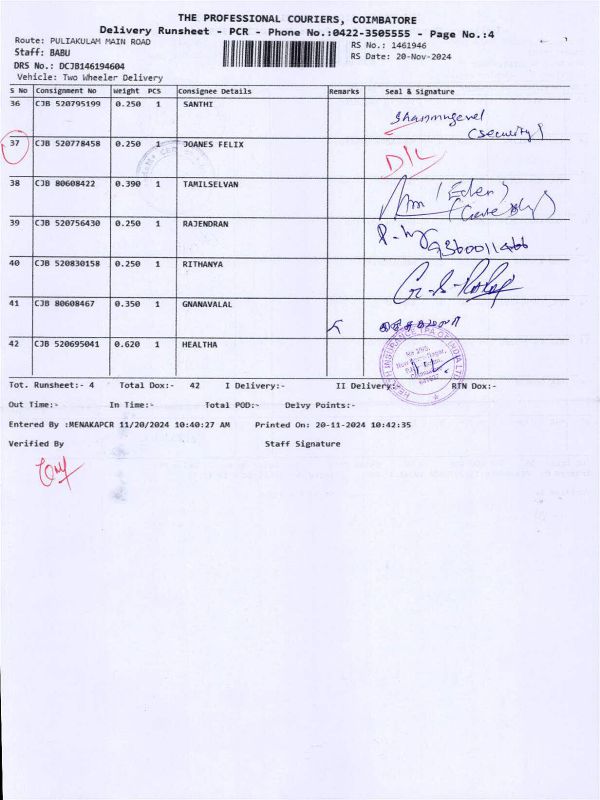 THE PROFESSIONAL COURIERS, COIMBATORE
Delivery Runsheet - PCR - Phone No.:0422-3505555 - Page No.:4
Route: PULIAKULAM MAIN ROAD
RS No.: 1461946
Staff: BABU
RS Date: 20-Nov-2024
DRS No.: DCJB146194604
Vehicle: Two Wheeler Delivery
S No Consignment No Weight PCS Consignee Details Remarks Seal & Signature
36 CJB 520795199 0.250 1 SANTHI Shanmugavel
(Security)
37 CJB 520778458 0.250 1 JOANES FELIX D/L
38 CJB 80608422 0.390 1 TAMILSELVAN (Eden)
39 CJB 520756430 0.250 1 RAJENDRAN
40 CJB 520830158 0.250 1 RITHANYA
41 CJB 80608467 0.350 1 GNANAVALAL
42 CJB 520695041 0.620 1 HEALTHA
HEALTH INSURANCE TPA OF INDIA LTD
Tot. Runsheet:- 4 Total Dox:- 42 I Delivery:- II Delivery:- RTN Dox:-
Out Time:- In Time:- Total POD:- Delvy Points:-
Entered By :MENAKAPCR 11/20/2024 10:40:27 AM Printed On: 20-11-2024 10:42:35
Verified By Staff Signature